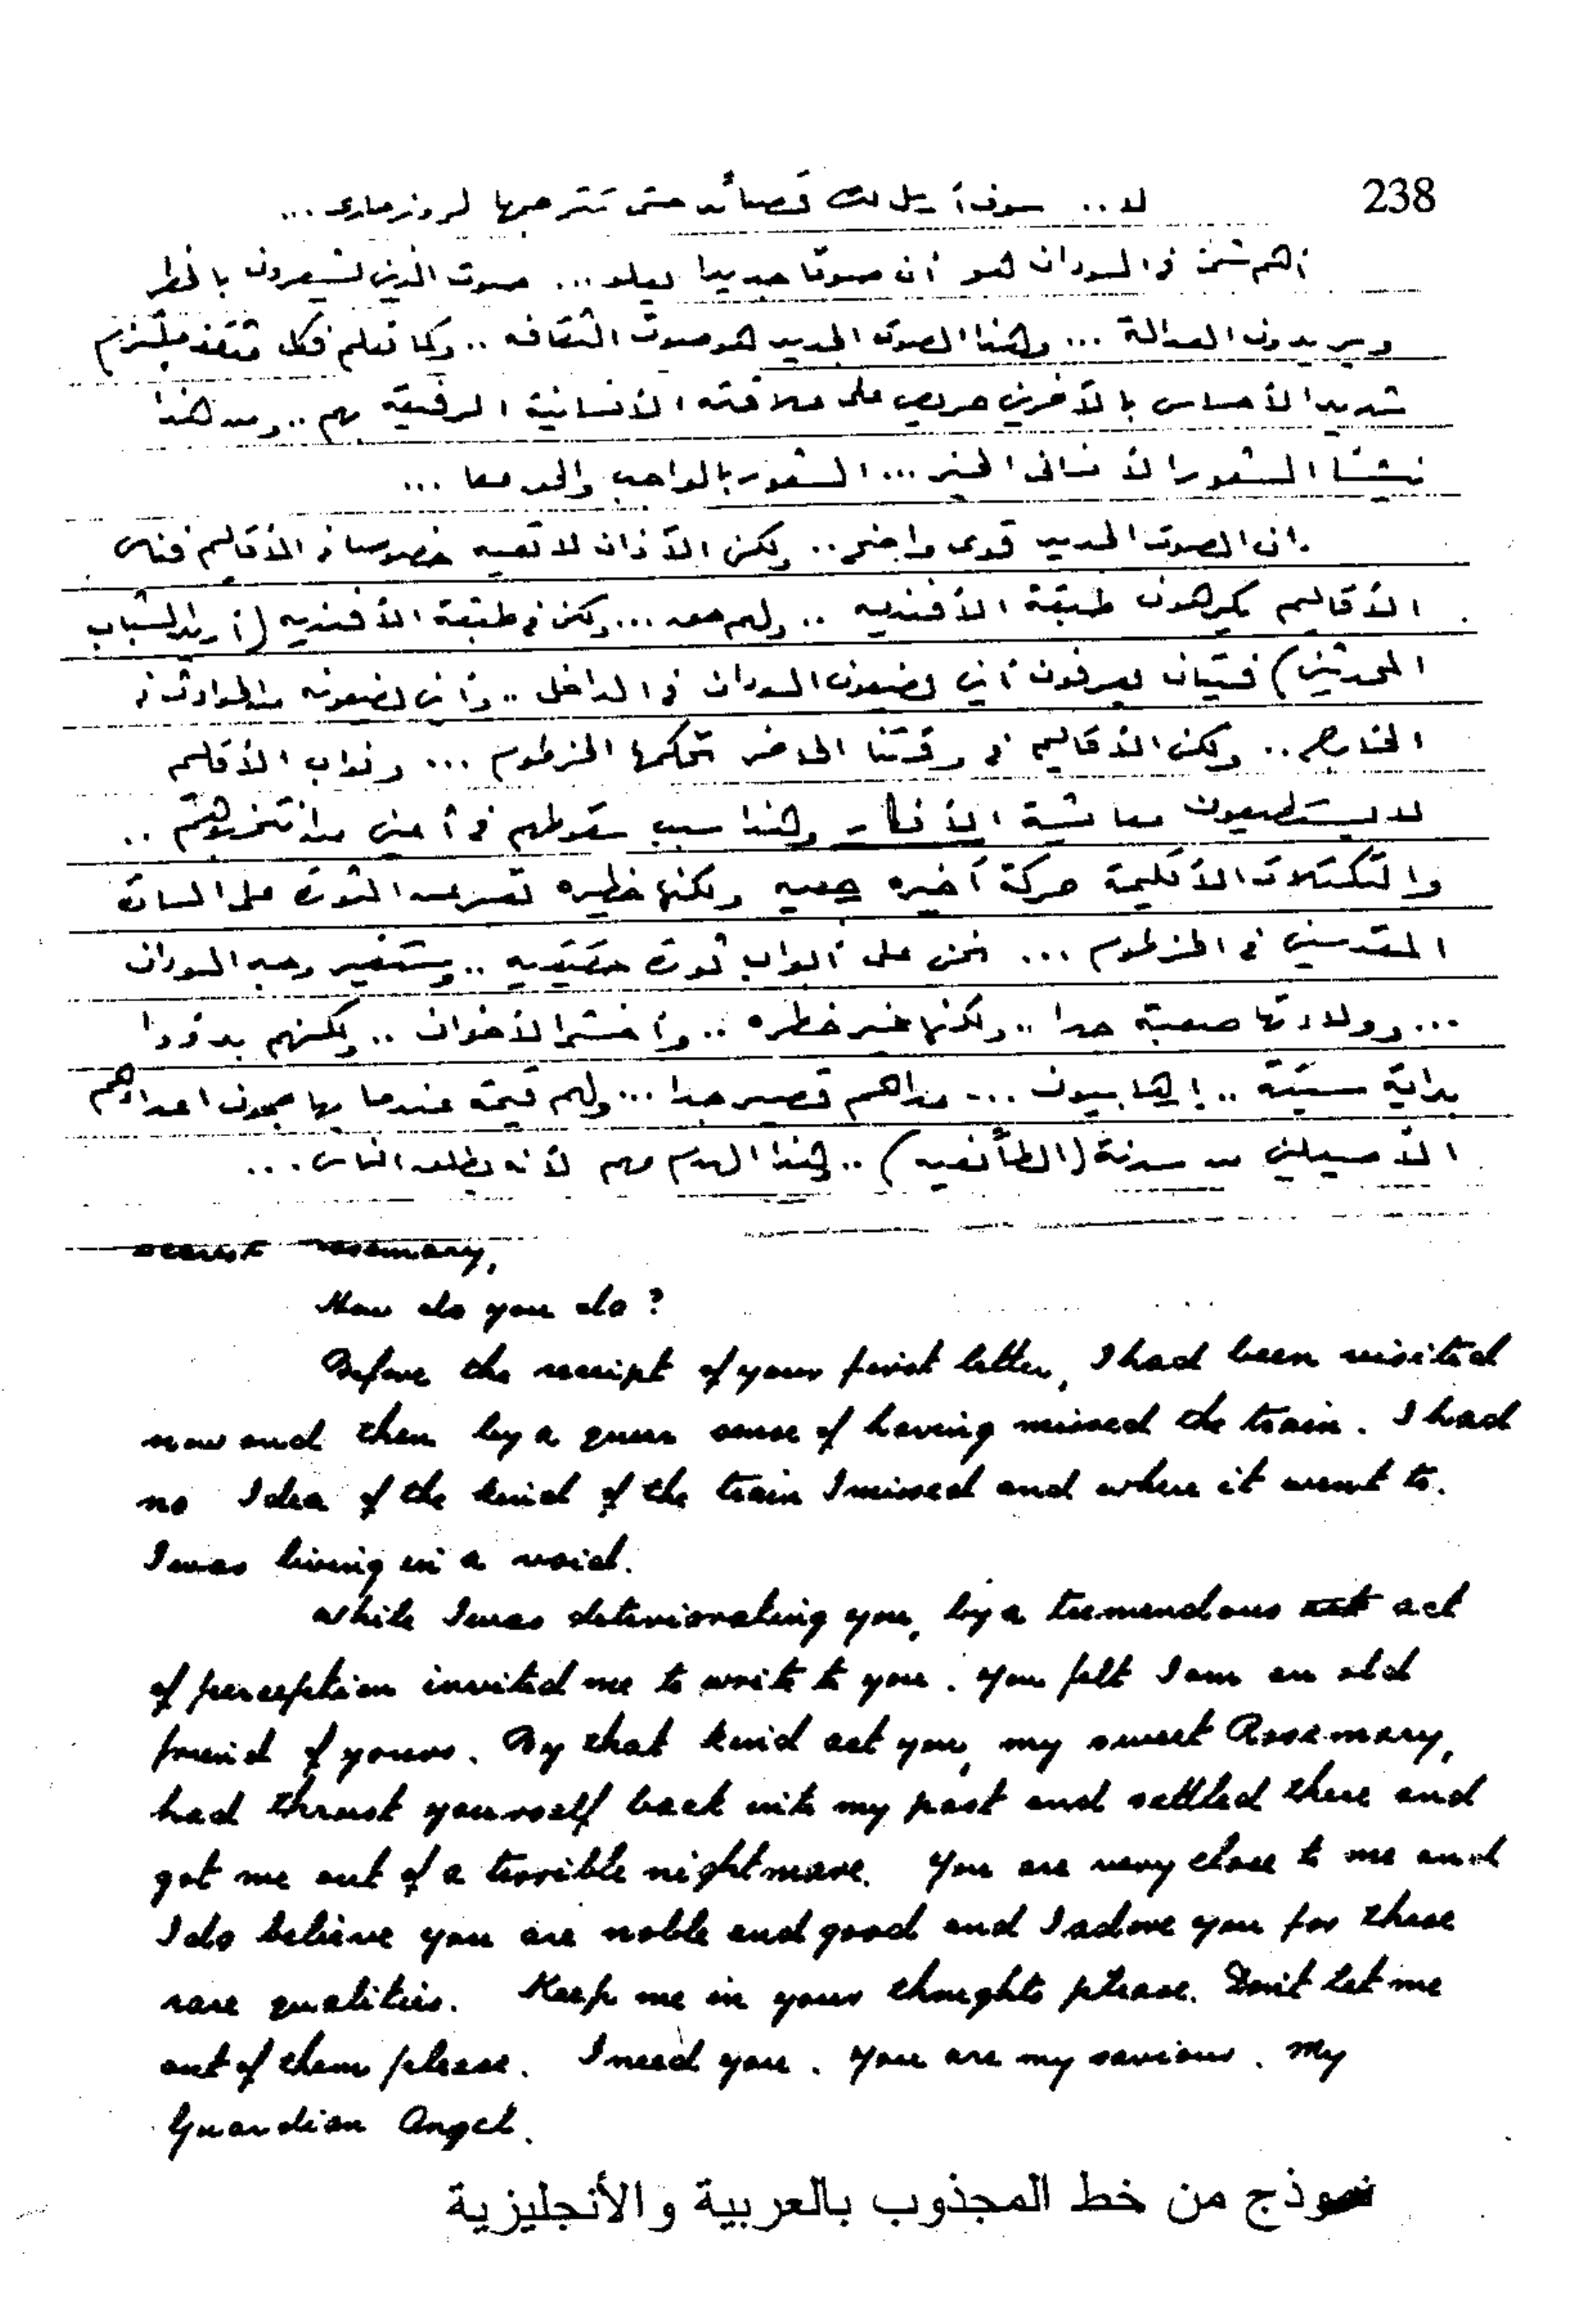 238
لا .. سوف أرسل لك قصائد حتى تترجمها لروزماري ...
أهم شئ في السودان هو أن صوتا جديدا يعلو ... صوت الذين يشعرون بالخطر
ويريدون العدالة ... وهذا الصوت الجديد هو صوت الثقافه .. وكما تعلم فكل مثقف ملتزم
شديد الأحساس بالآخرين حريص على علاقته الأنسانية الرفيعة بهم .. ومن هذا
ينشأ الشعور الأنساني الخير ... الشعور بالواجب والحق معا ...
ان الصوت الجديد قوى واضح .. ولكن الآذان لا تعيه خصوصا في الأقاليم فناس
الأقاليم يكرهون طبقة الأفنديه .. ولهم حق ... ولكن في طبقة الأفنديه (أو الشباب
المحدثين) فتيان يعرفون أين يضعون السودان في الداخل .. وأين يضعونه من الحوادث في
الخارج .. ولكن الأقاليم في وقتنا الحاضر تحكمها الخرطوم ... ونواب الأقاليم
لا يستطيعون معايشة الأفكار وهذا سبب سقوطهم في أعين من انتخبوهم ..
والتكتلات الأقليمة حركة أخيره ولكنها خطيره تعبر عن الثورة على السادة
المقدسين في الخرطوم ... نحن على أبواب ثورة حقيقيه .. وستغير وجه السودان
... وولادتها صعبة جدا .. ولكنها غير خطره .. وأخشى الأخوان .. ولكنهم بدؤوا
بداية سيئة .. إرهابيون ... مداهم قصير جدا ... ولهم قيمة عندما يهاجمون اعداءهم
الأصيلين من سدنة (الطائفيه) .. هذا الهدم مهم لأنه يطلق الناس ...
Dearest Rosemary,
How do you do?
Before the receipt of your first letter, I had been visited
now and then by a queer sense of having missed the train. I had
no Idea of the kind of the train I missed and where it went to.
I was living in a void.
While I was deteriorating you, by a tremendous act
of perception invited me to write to you. You felt I am an old
friend of yours. By that kind act you, my sweet Rosemary,
had thrust yourself back into my past and settled there and
got me out of a terrible nightmare. You are very close to me and
I do believe you are noble and good and I adore you for these
rare qualities. Keep me in your thoughts please. Don't let me
out of them please. I need you. You are my saviour. My
Guardian Angel.
نموذج من خط المجذوب بالعربية والأنجليزية